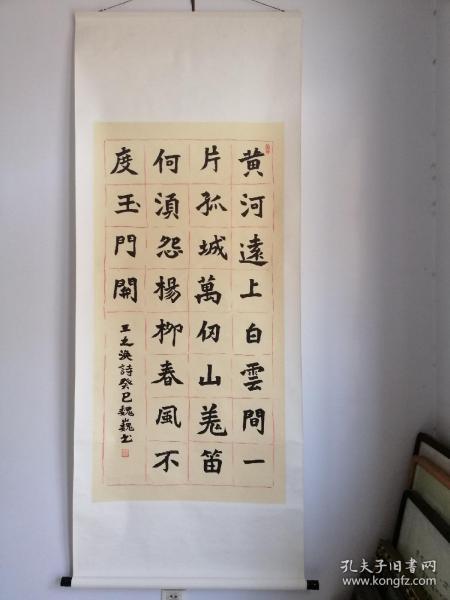 黄河遠上白雲間一
片孤城萬仞山羌笛
何須怨楊柳春風不
度玉門關
王之渙詩癸巳魏巍書
孔夫子旧书网
www.kongfz.com